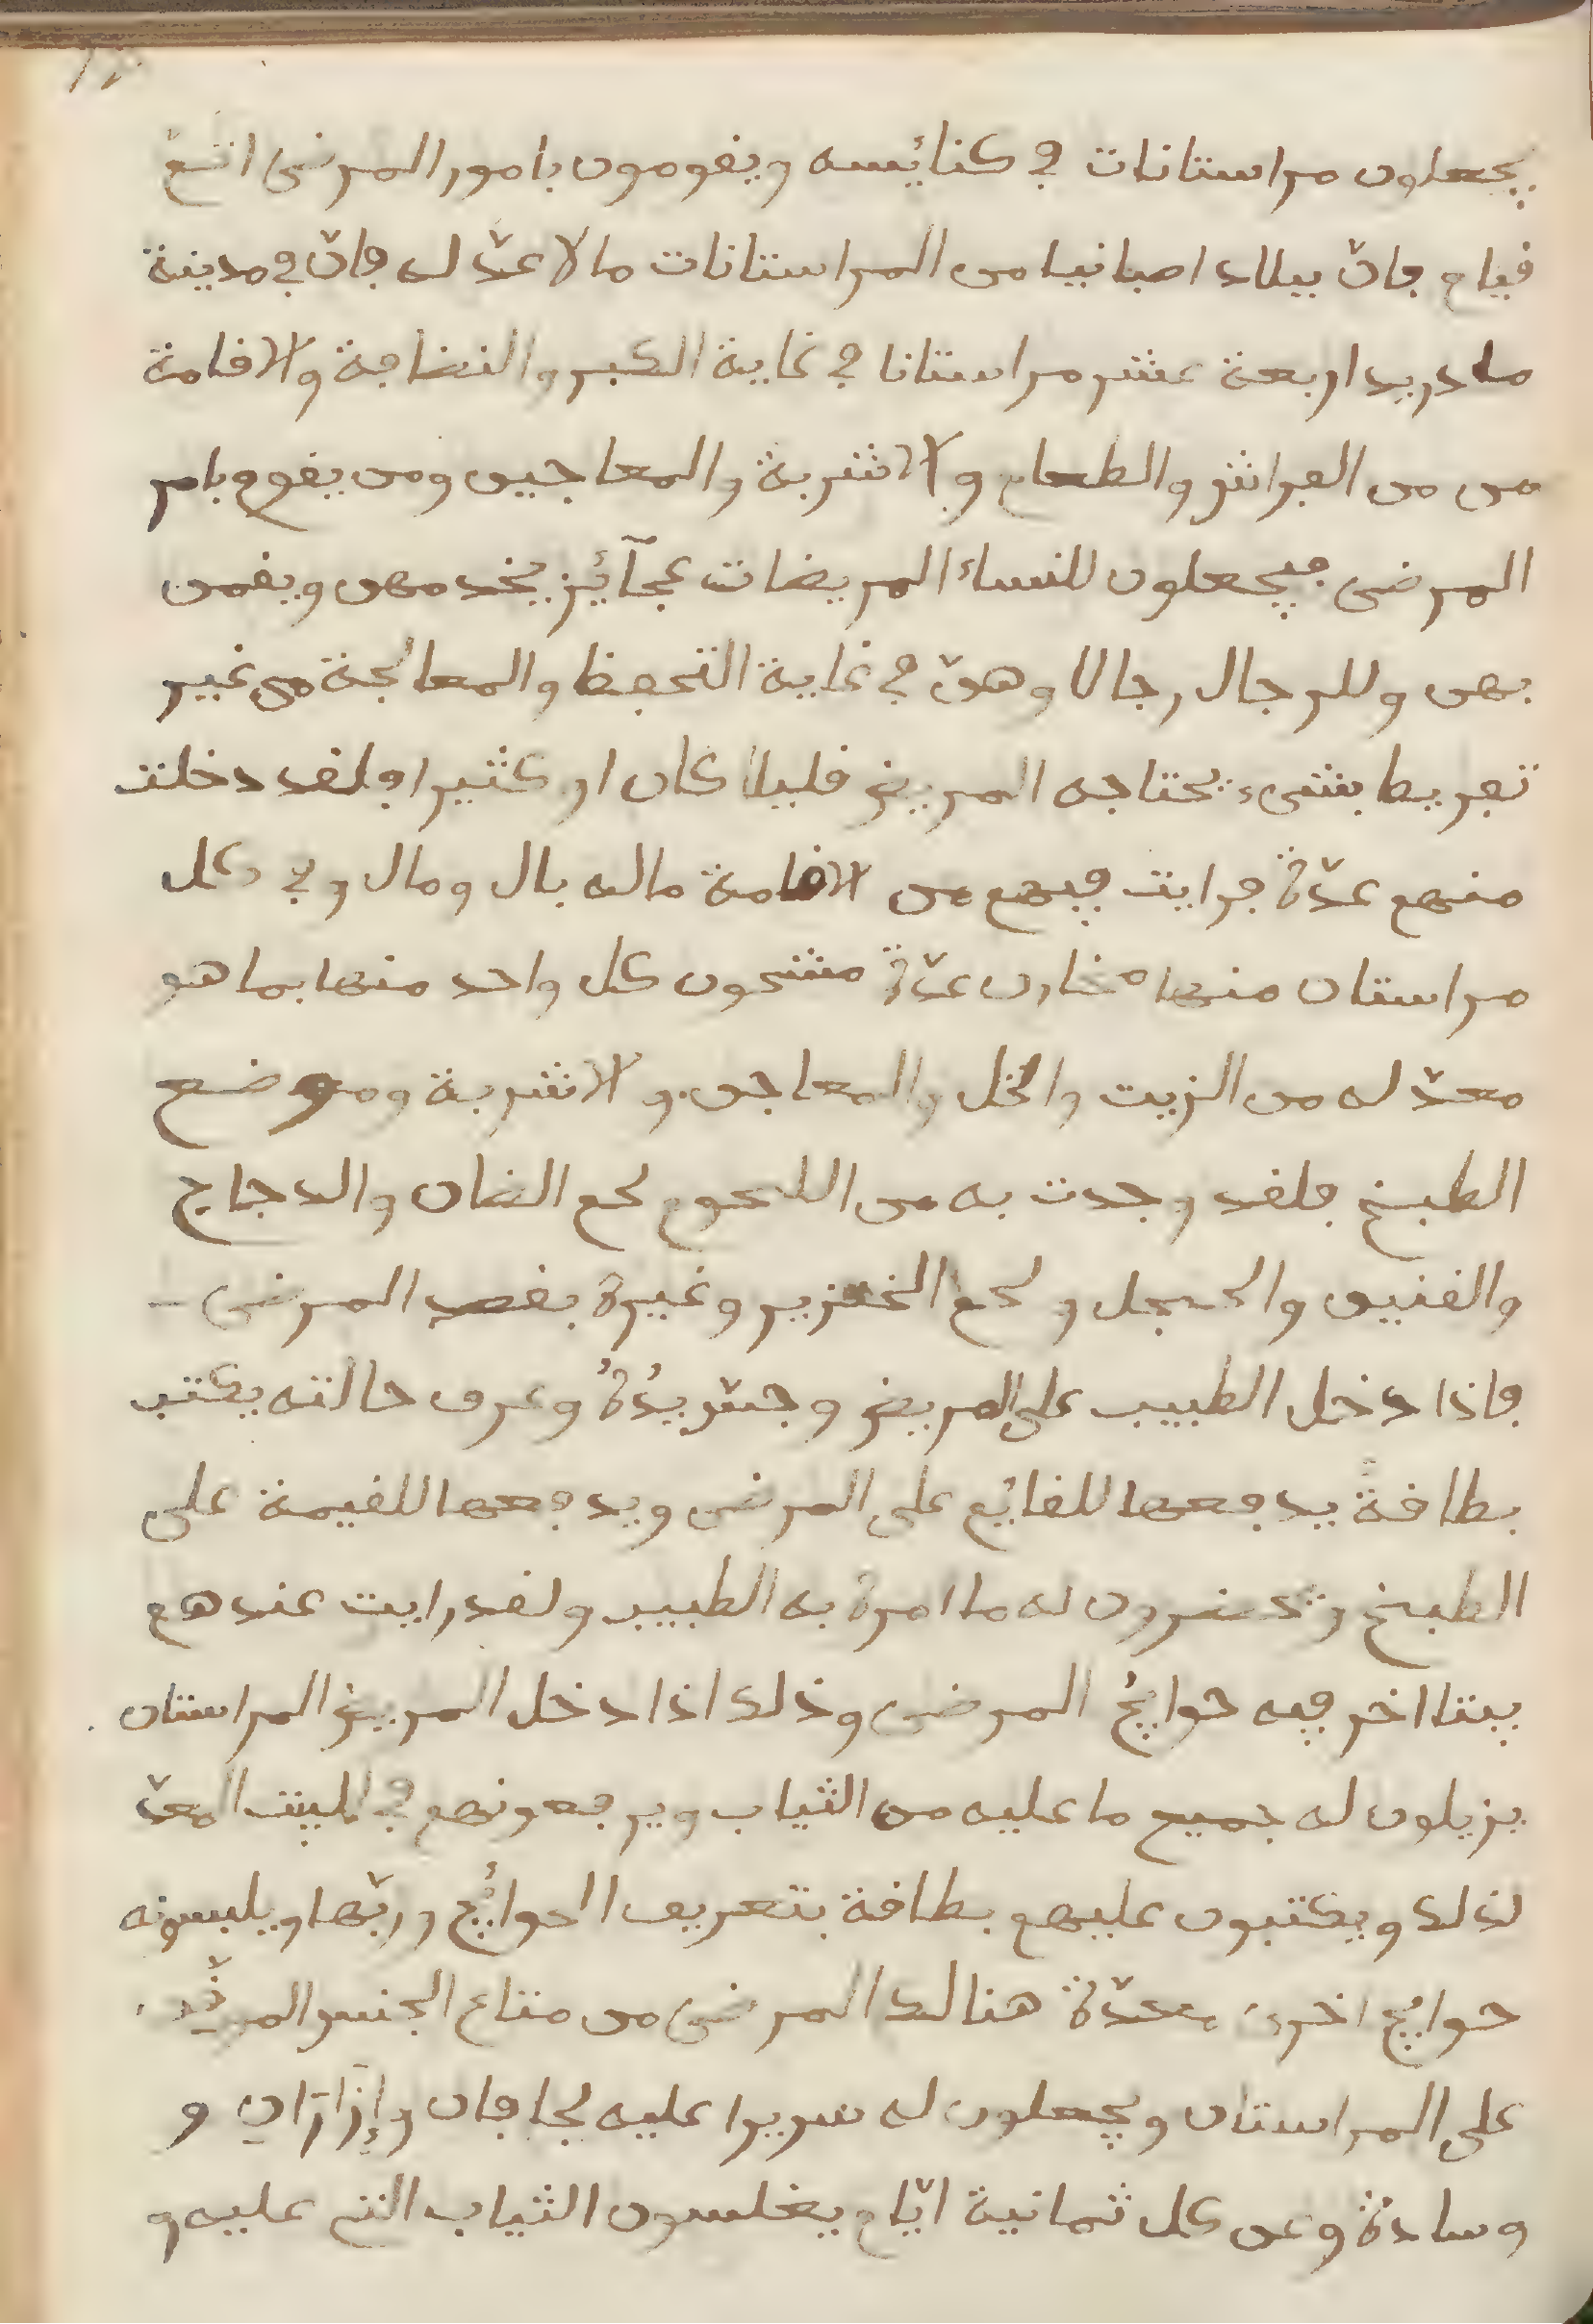 يجعلون مراستانات في كنائسه ويقومون بامور المرضى اتمّ
قيام فانّ ببلاد اصبانيا من المراستانات ما لا عدّ له فانّ في مدينة
مادريد اربعة عشر مراستانا في غاية الكبر والنضافة والاقامة
من من الفراش والطعام والاشربة والمعاجين ومن يقوم بامر
المرضى فيجعلون للنساء المريضات عجآئز يخدمهن ويقمن
بهن وللرجال رجالا وهنّ في غاية التحفظ والمعالجة من غير
تفريط بشىء يحتاجه المريض قليلا كان او كثيرا ولقد دخلت
منهم عدّة فرايت فيهم من الاقامة ماله بال ومال وفي كل
مراستان منها مخازن عدّة مشحون كل واحد منها بما هو
معدّ له من الزيت والخل والمعاجن والاشربة وموضع
الطبخ فلقد وجدت به من اللحوم لحم الضان والدجاج
والقنين والحجل ولحم الخنزير وغيرة بقصد المرضى
فاذا دخل الطبيب على المريض وجسّ يدُهُ وعرف حالته يكتب
بطاقةً يدفعها للقايم على المرضى ويدفعها للقيمة على
الطبخ ويحضرون له ما امرة به الطبيب ولقد رايت عندهم
بيتا اخر فيه حوايجُ المرضى وذلك اذا دخل المريض المراستان
يزيلون له جميع ما عليه من الثياب ويرفعونهم في البيت المعدّ
لذلك ويكتبون عليهم بطاقة بتعريف الحوائج وربّها ويلبسونه
حوايج اخرى معدّة هنالك المرضى من متاع الجنس
على المراستان ويجعلون له سريرا عليه لحافان وإزَارَان و
وسادة وعن كل ثمانية ايّام يغلسون الثياب التي عليه و